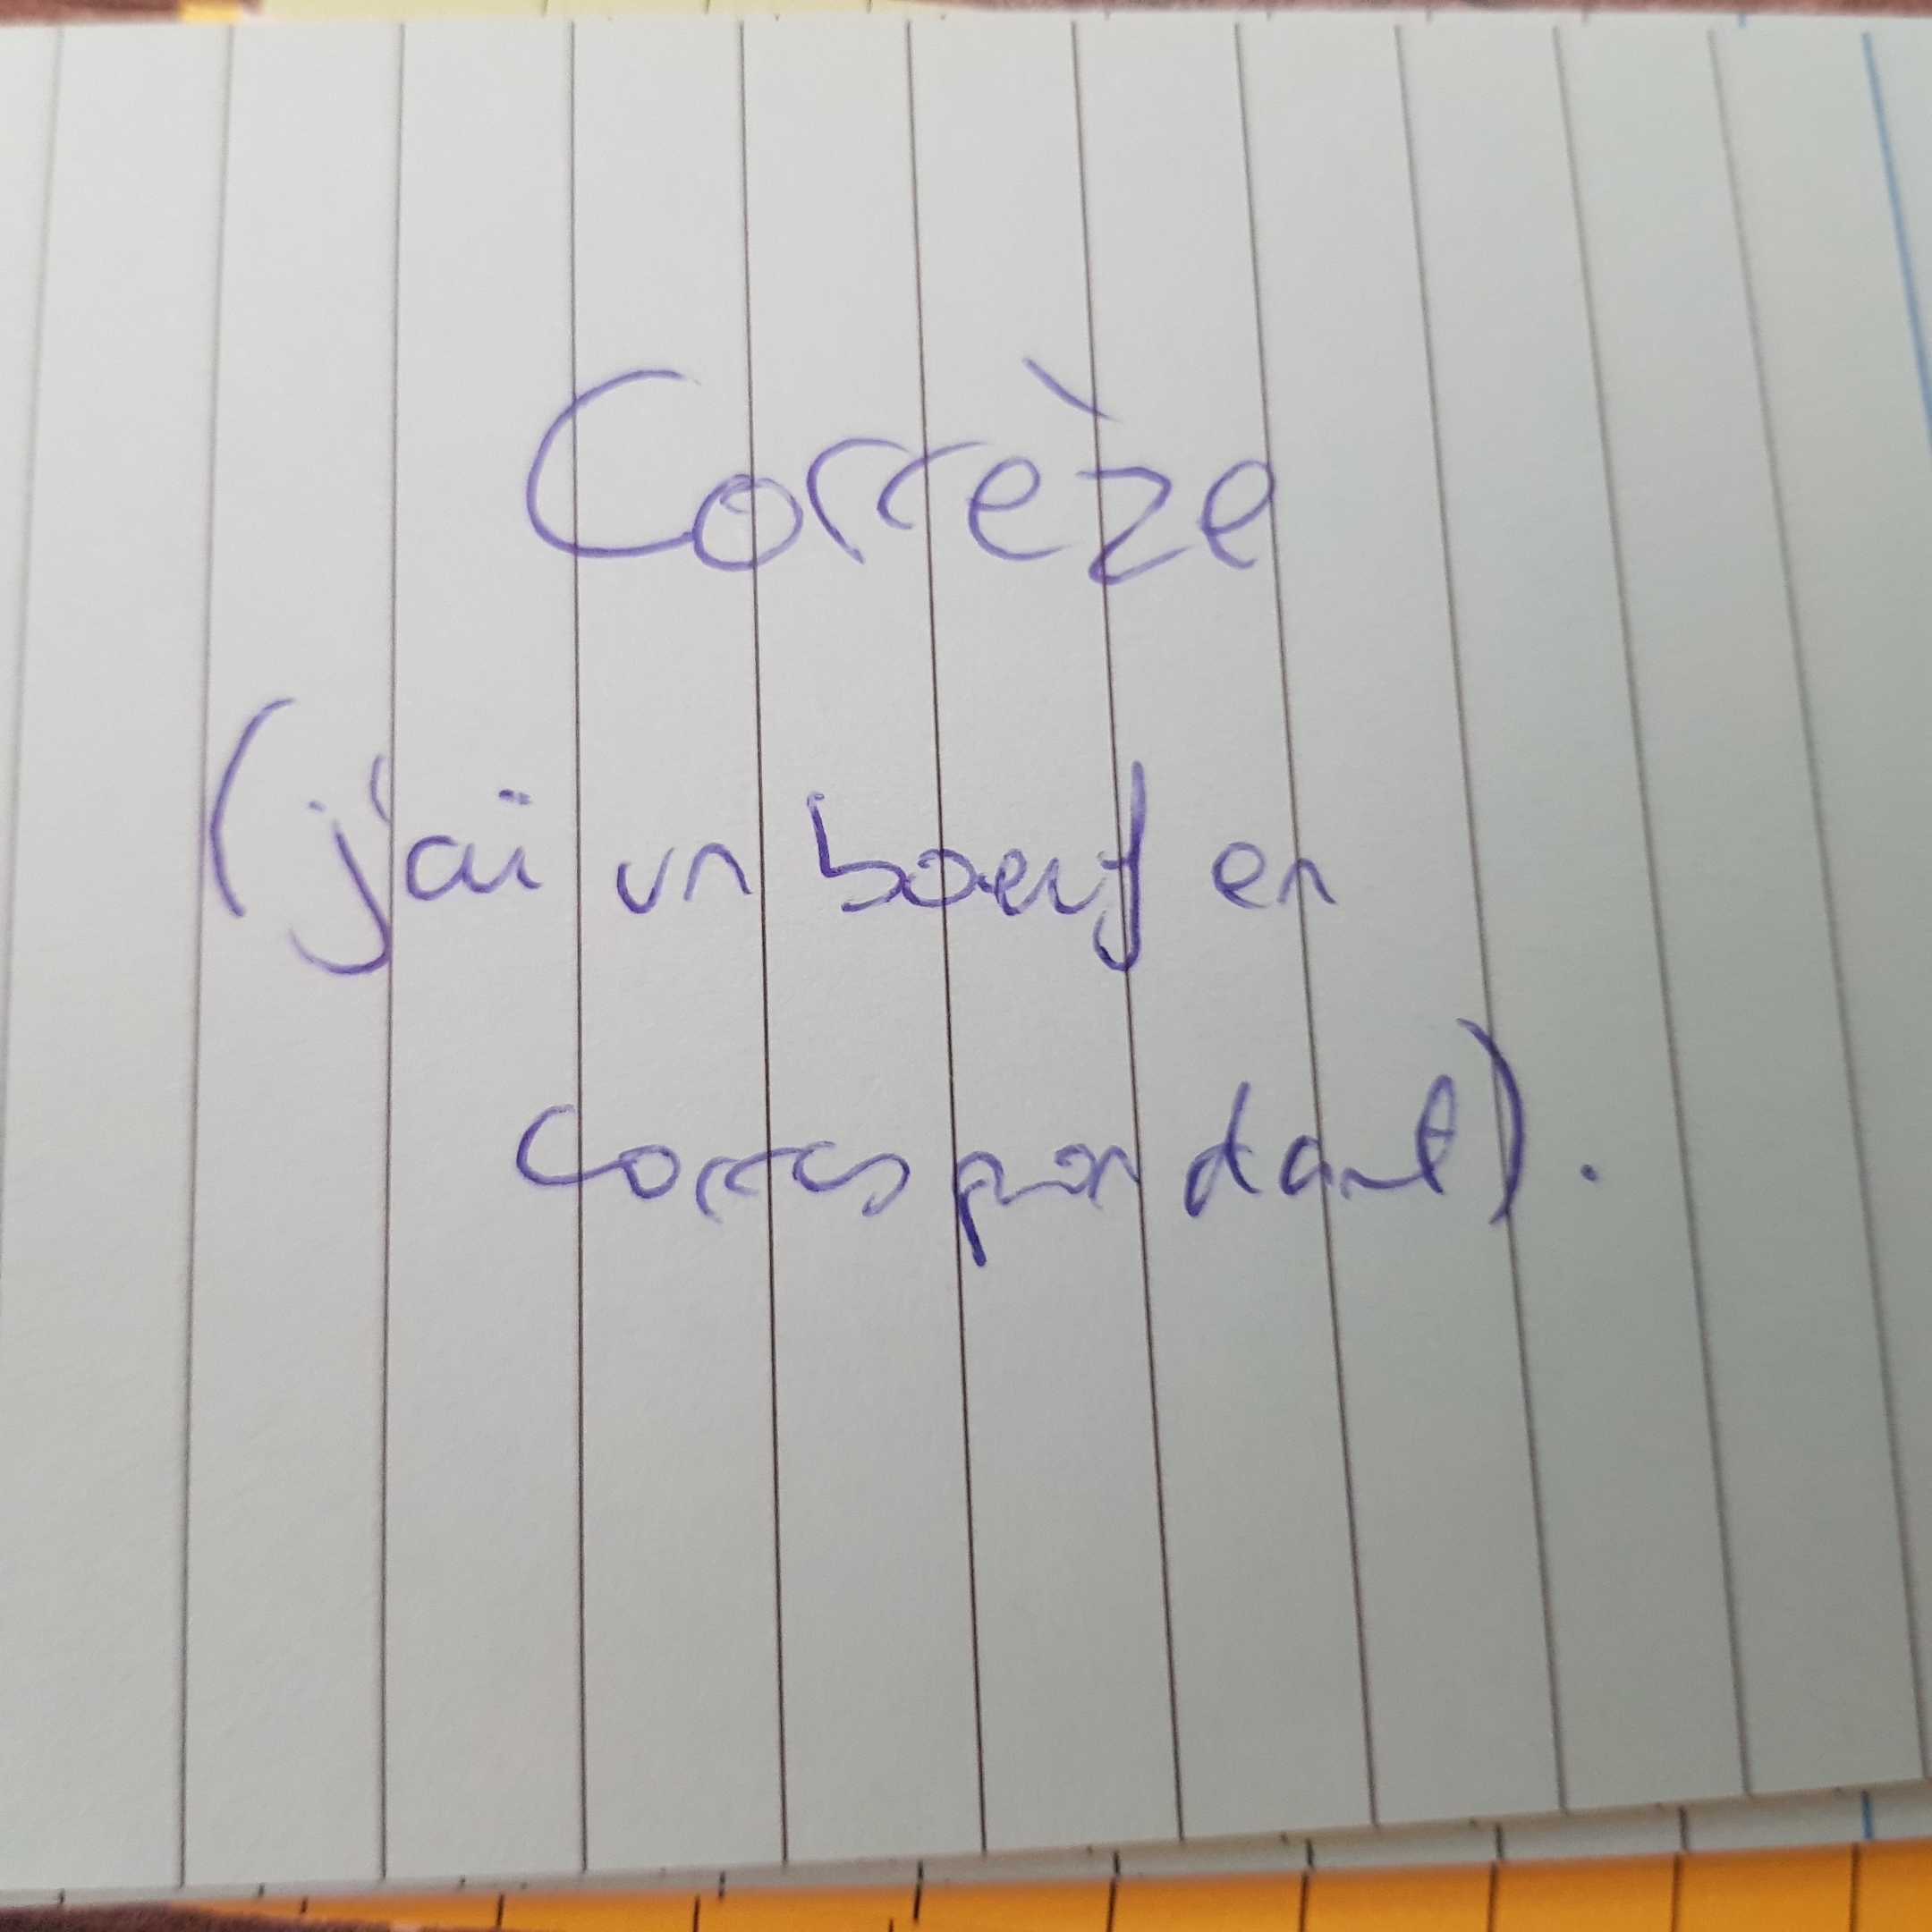 Corrèze
(j'ai un boeuf en
correspondant).